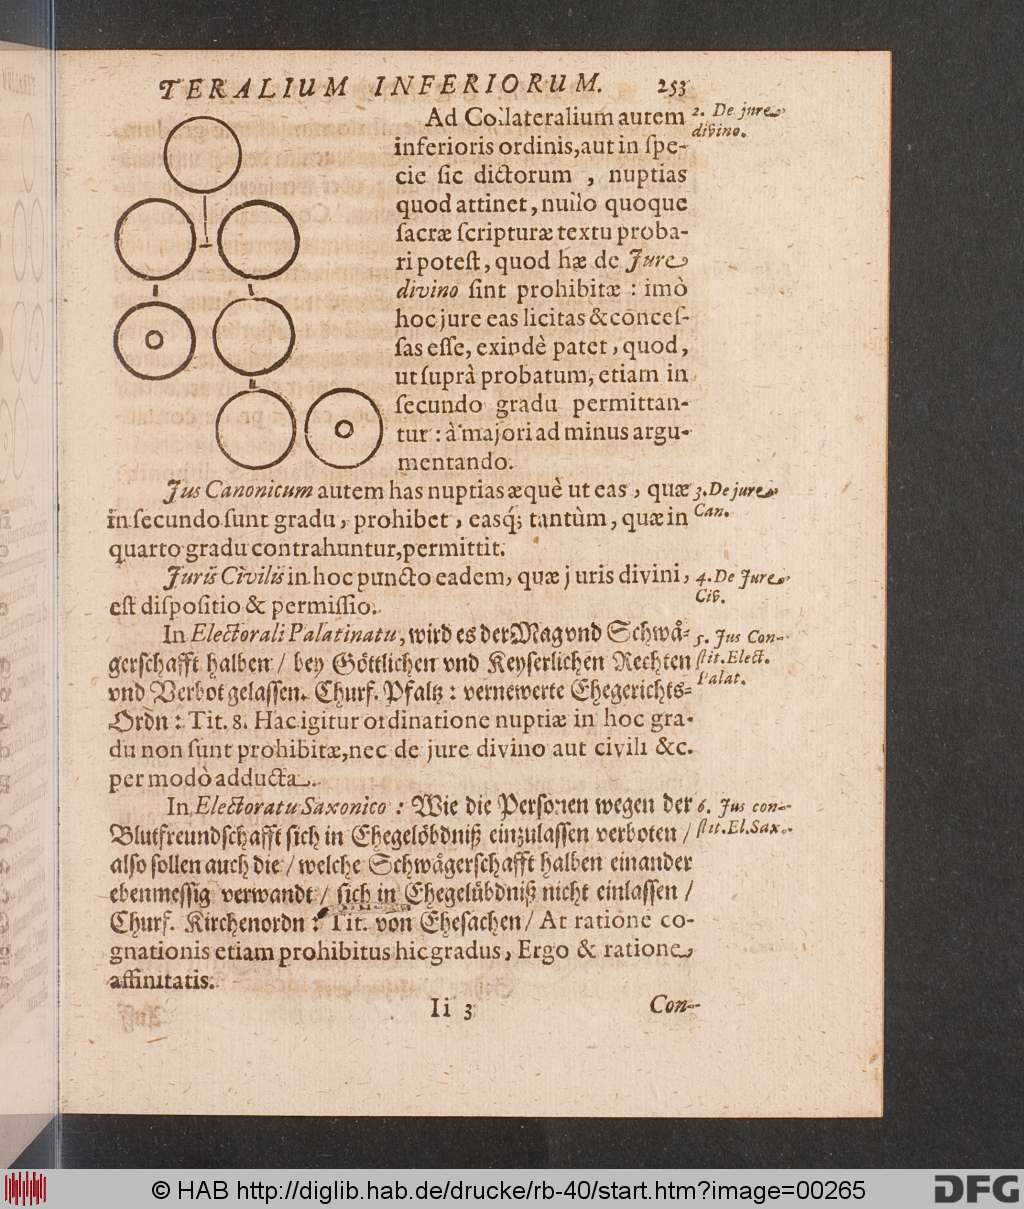 TERALIUM INFERIORUM. 253
Ad Collateralium autem
inferioris ordinis, aut in ſpe-
cie ſic dictorum , nuptias
quod attinet, nullo quoque
ſacræ ſcripturæ textu proba-
ri poteſt, quod hæ de Jure
divino ſint prohibitæ : imò
hoc jure eas licitas & conceſ-
ſas eſſe, exindè patet, quod,
ut ſuprà probatum, etiam in
ſecundo gradu permittan-
tur : à majori ad minus argu-
mentando.
2. De jure
divino.
Jus Canonicum autem has nuptias æquè ut eas, quæ
in ſecundo ſunt gradu, prohibet, easq́; tantùm, quæ in
quarto gradu contrahuntur, permittit.
3. De jure
Can.
Juris Civilis in hoc puncto eadem, quæ juris divini,
eſt diſpoſitio & permiſſio.
4. De Jure
Civ.
In Electorali Palatinatu, wird es der Mag vnd Schwå-
gerſchafft halben / bey Göttlichen vnd Keyſerlichen Rechten
vnd Verbot gelaſſen. Churf. Pfaltz : vernewerte Ehegerichts-
Ordn : Tit. 8. Hac igitur ordinatione nuptiæ in hoc gra-
du non ſunt prohibitæ, nec de jure divino aut civili &c.
per modò adducta.
5. Jus Con-
ſtit. Elect.
Palat.
In Electoratu Saxonico : Wie die Perſonen wegen der
Blutfreundſchafft ſich in Ehegelöbdniß einzulaſſen verboten /
alſo ſollen auch die / welche Schwågerſchafft halben einander
ebenmeſſig verwandt / ſich in Ehegelübdniß nicht einlaſſen /
Churf. Kirchenordn : Tit. von Eheſachen / At ratione co-
gnationis etiam prohibitus hic gradus, Ergo & ratione
affinitatis.
6. Jus con-
ſtit. El. Sax.
Ii 3 Con-
© HAB http://diglib.hab.de/drucke/rb-40/start.htm?image=00265
DFG